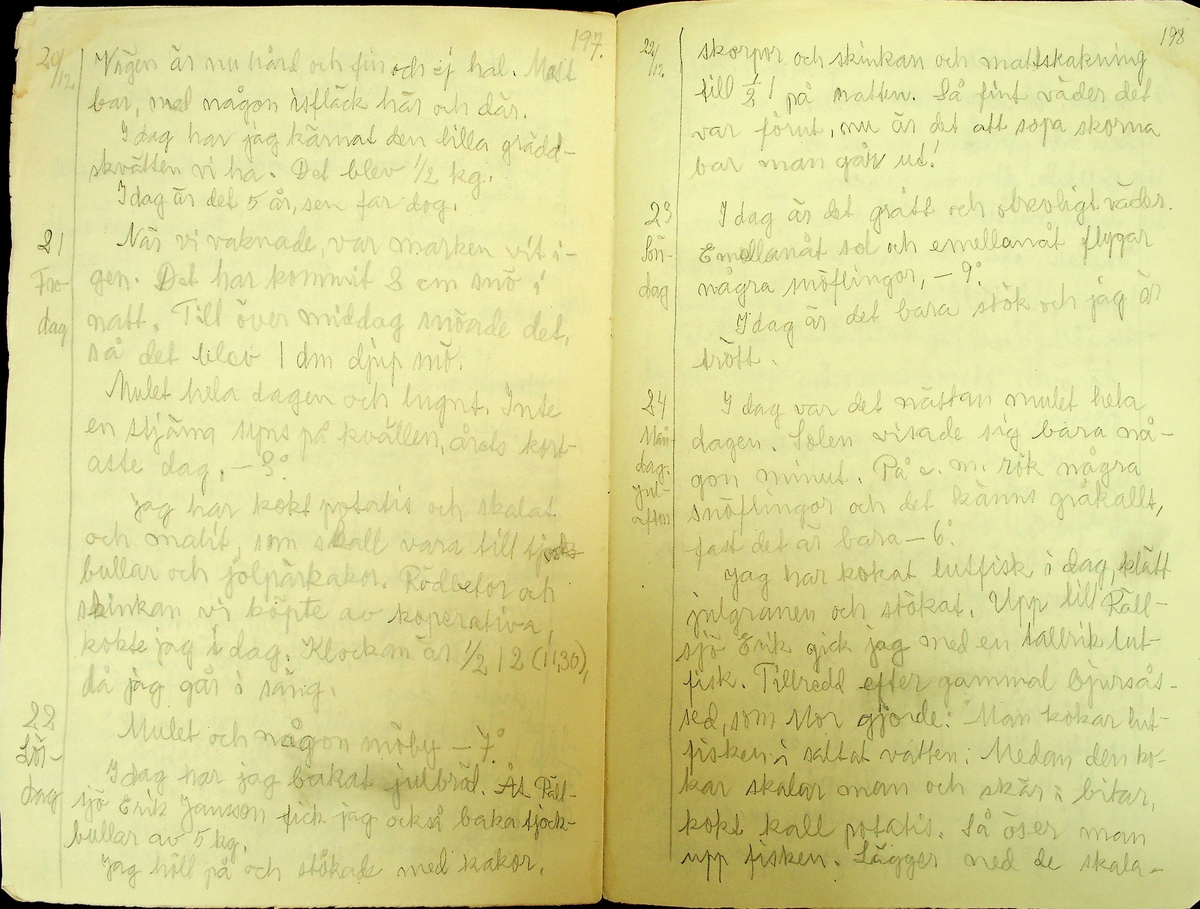 197.
20/12. Vägen är nu hård och fin och ej hal. Mest
bar, med någon isfläck här och där.
I dag har jag kärnat den lilla grädd-
skvätten vi ha. Det blev 1/2 kg.
I dag är det 5 år, sen far dog.
21 När vi vaknade, var marken vit i-
Fre- gen. Det har kommit 3 cm snö i
dag natt. Till över middag snöade det,
så det blev 1 dm djup snö.
Mulet hela dagen och lugnt. Inte
en stjärna syns på kvällen, årets kort-
aste dag. – 3°
Jag har kokt potatis och skalat
och malit, som skall vara till tjock-
bullar och jolpärkakor. Rödbetor och
skinkan vi köpte av koperativa,
kokte jag i dag. Klockan är 1/2 12 (11,30),
då jag går i säng.
22 Mulet och någon snöby – 7°
Lör- I dag har jag bakat julbröd. Åt Päll-
dag sjö Erik Jansson fick jag också baka tjock-
bullar av 5 kg.
Jag höll på och stökade med kakor,
198
22/12. skorpor och skinkan och mattskakning
till 1/2 1 på natten. Så fint väder det
var förut, nu är det att sopa skorna
bar man går ut!
23 I dag är det grått och otrevligt väder.
Sön- Emellanåt sol och emellanåt flygar
dag några snöflingor, – 9°
I dag är det bara stök och jag är
trött.
24 I dag var det nästan mulet hela
Mån- dagen. Solen visade sig bara nå-
dag. gon minut. På e. m. rök några
Jul- snöflingor och det känns gråkallt,
afton fast det är bara – 6°
Jag har kokat lutfisk i dag, klätt
julgranen och stökat. Upp till Päll-
sjö Erik gick jag med en tallrik lut-
fisk. Tillredd efter gammal Bjursås-
sed, som Mor gjorde: "Man kokar lut-
fisken i saltat vatten. Medan den ko-
kar skalar man och skär i bitar,
kokt kall potatis. Så öser man
upp fisken. Lägger ned de skala-